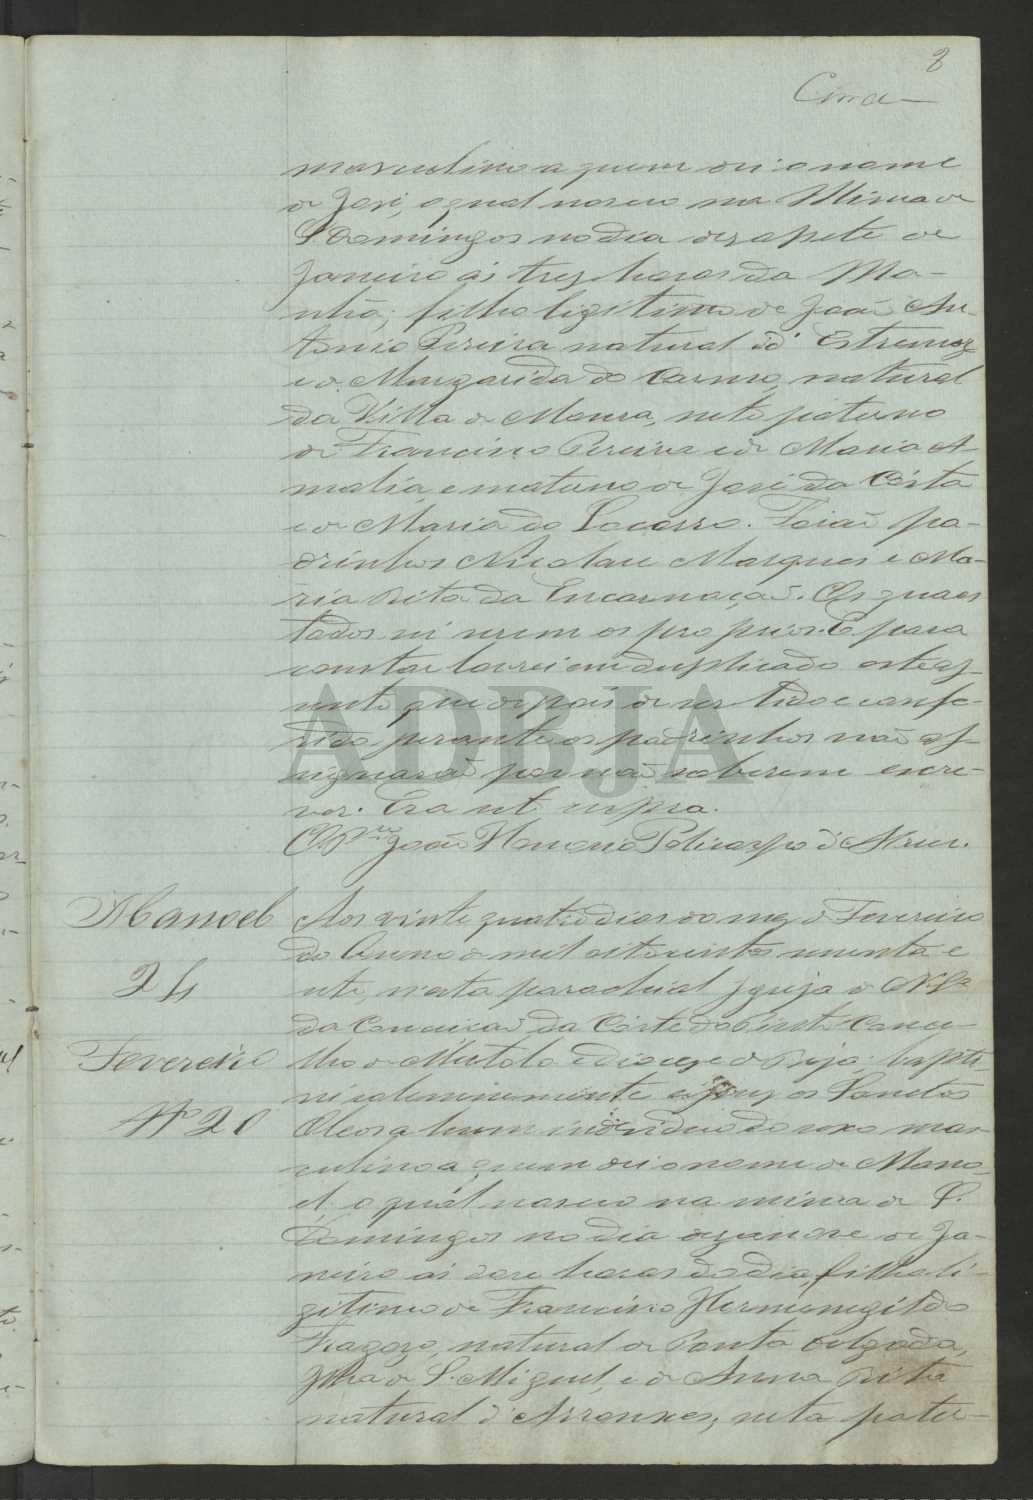 8
masculino a quem dei o nome
de José, o qual nasceu na Mina de
S. Domingos no dia dezasete de
Janeiro ás trez horas da Ma-
nhã; filho ligitimo de João An-
tonio Pereira natural d' Estremoz
e de Margarida do Carmo, natural
da Villa de Moura, neto paterno
de Francisco Pereira e de Maria A-
malia, e materno de José da Costa
e de Maria do Socorro. Forão pa-
drinhos Nicolau Marques e Ma-
ria Rita da Encarnação. Os quaes
todos sei serem os proprios. E para
constar lavrei em duplicado este as-
sento, que depois de ser lido e confe-
rido perante os padrinhos não as-
signarão por não saberem escre-
ver. Era ut supra.
João Policarpo
Manoel
24
Fevereiro
Nº 20
Aos vinte quatro dias do mez de Fevereiro
do Anno de mil oitocentos setenta e
sete, nesta parochial Igreja de N. Srª
da Conceição da Corte do Pinto Conce-
lho de Mertola e diocese de Beja, baptis-
ei solemnemente e puz os Santos
Oleos a hum individuo do sexo mas-
culino a quem dei o nome de Mano-
el, o qual nasceu na mina de S.
Domingos no dia dezanove de Ja-
neiro ás doze horas do dia, filho li-
gitimo de Francisco Hermenegildo
Fragozo, natural de Ponta Delgada,
Ilha de S. Miguel, e de Anna Rita
natural d' Arronxes, neto pater-
ADBJA